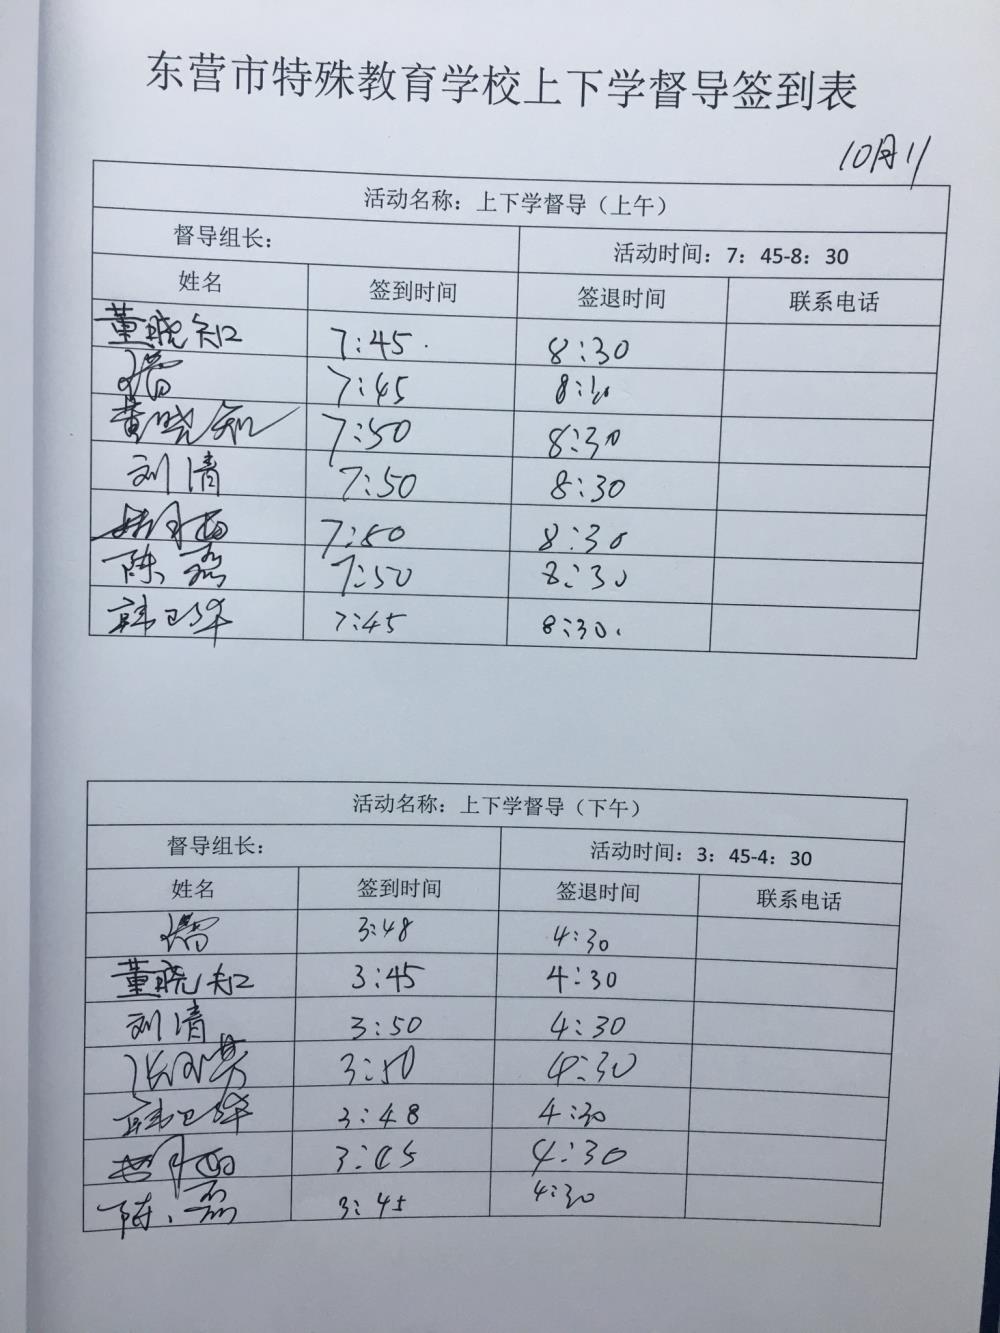 东营市特殊教育学校上下学督导签到表
10月11
活动名称：上下学督导（上午）
督导组长： 活动时间：7：45-8：30
姓名 签到时间 签退时间 联系电话
董晓知 7:45 8:30
7:45 8:30
黄晓知 7:50 8:30
刘清 7:50 8:30
7:50 8:30
陈磊 7:50 8:30
韩卫华 7:45 8:30.
活动名称：上下学督导（下午）
督导组长： 活动时间：3：45-4：30
姓名 签到时间 签退时间 联系电话
3:48 4:30
董晓知 3:45 4:30
刘清 3:50 4:30
3:50 4:30
韩卫华 3:48 4:30
3:45 4:30
陈磊 3:45 4:30